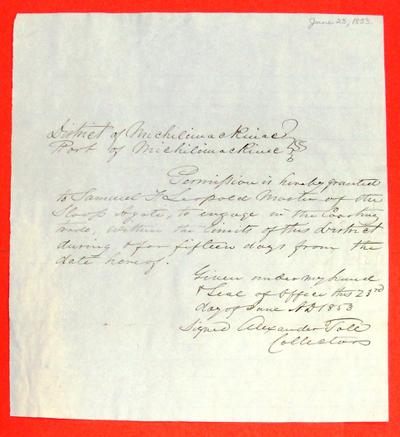 June 23, 1853.
District of Michilimackinac
Port of Michilimackinac
Permission is hereby granted
to Samuel F Leopold Master of the
Sloop Agate, to engage in the Coasting
trade, within the limits of this District
during & for fifteen days from the
date hereof.
Given under my hand
& Seal of Office this 23rd
day of June AD 1853
Signed Alexander Toll
Collector